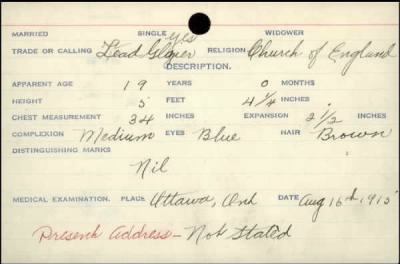 MARRIED SINGLE yes WIDOWER
TRADE OR CALLING Lead Glazier RELIGION Church of England
DESCRIPTION.
APPARENT AGE 19 YEARS 0 MONTHS
HEIGHT 5 FEET 4 1/4 INCHES
CHEST MEASUREMENT 34 INCHES EXPANSION 2 1/2 INCHES
COMPLEXION Medium EYES Blue HAIR Brown
DISTINGUISHING MARKS
Nil
MEDICAL EXAMINATION. PLACE Ottawa, Ont DATE Aug 16th, 1915
Present Address - Not Stated